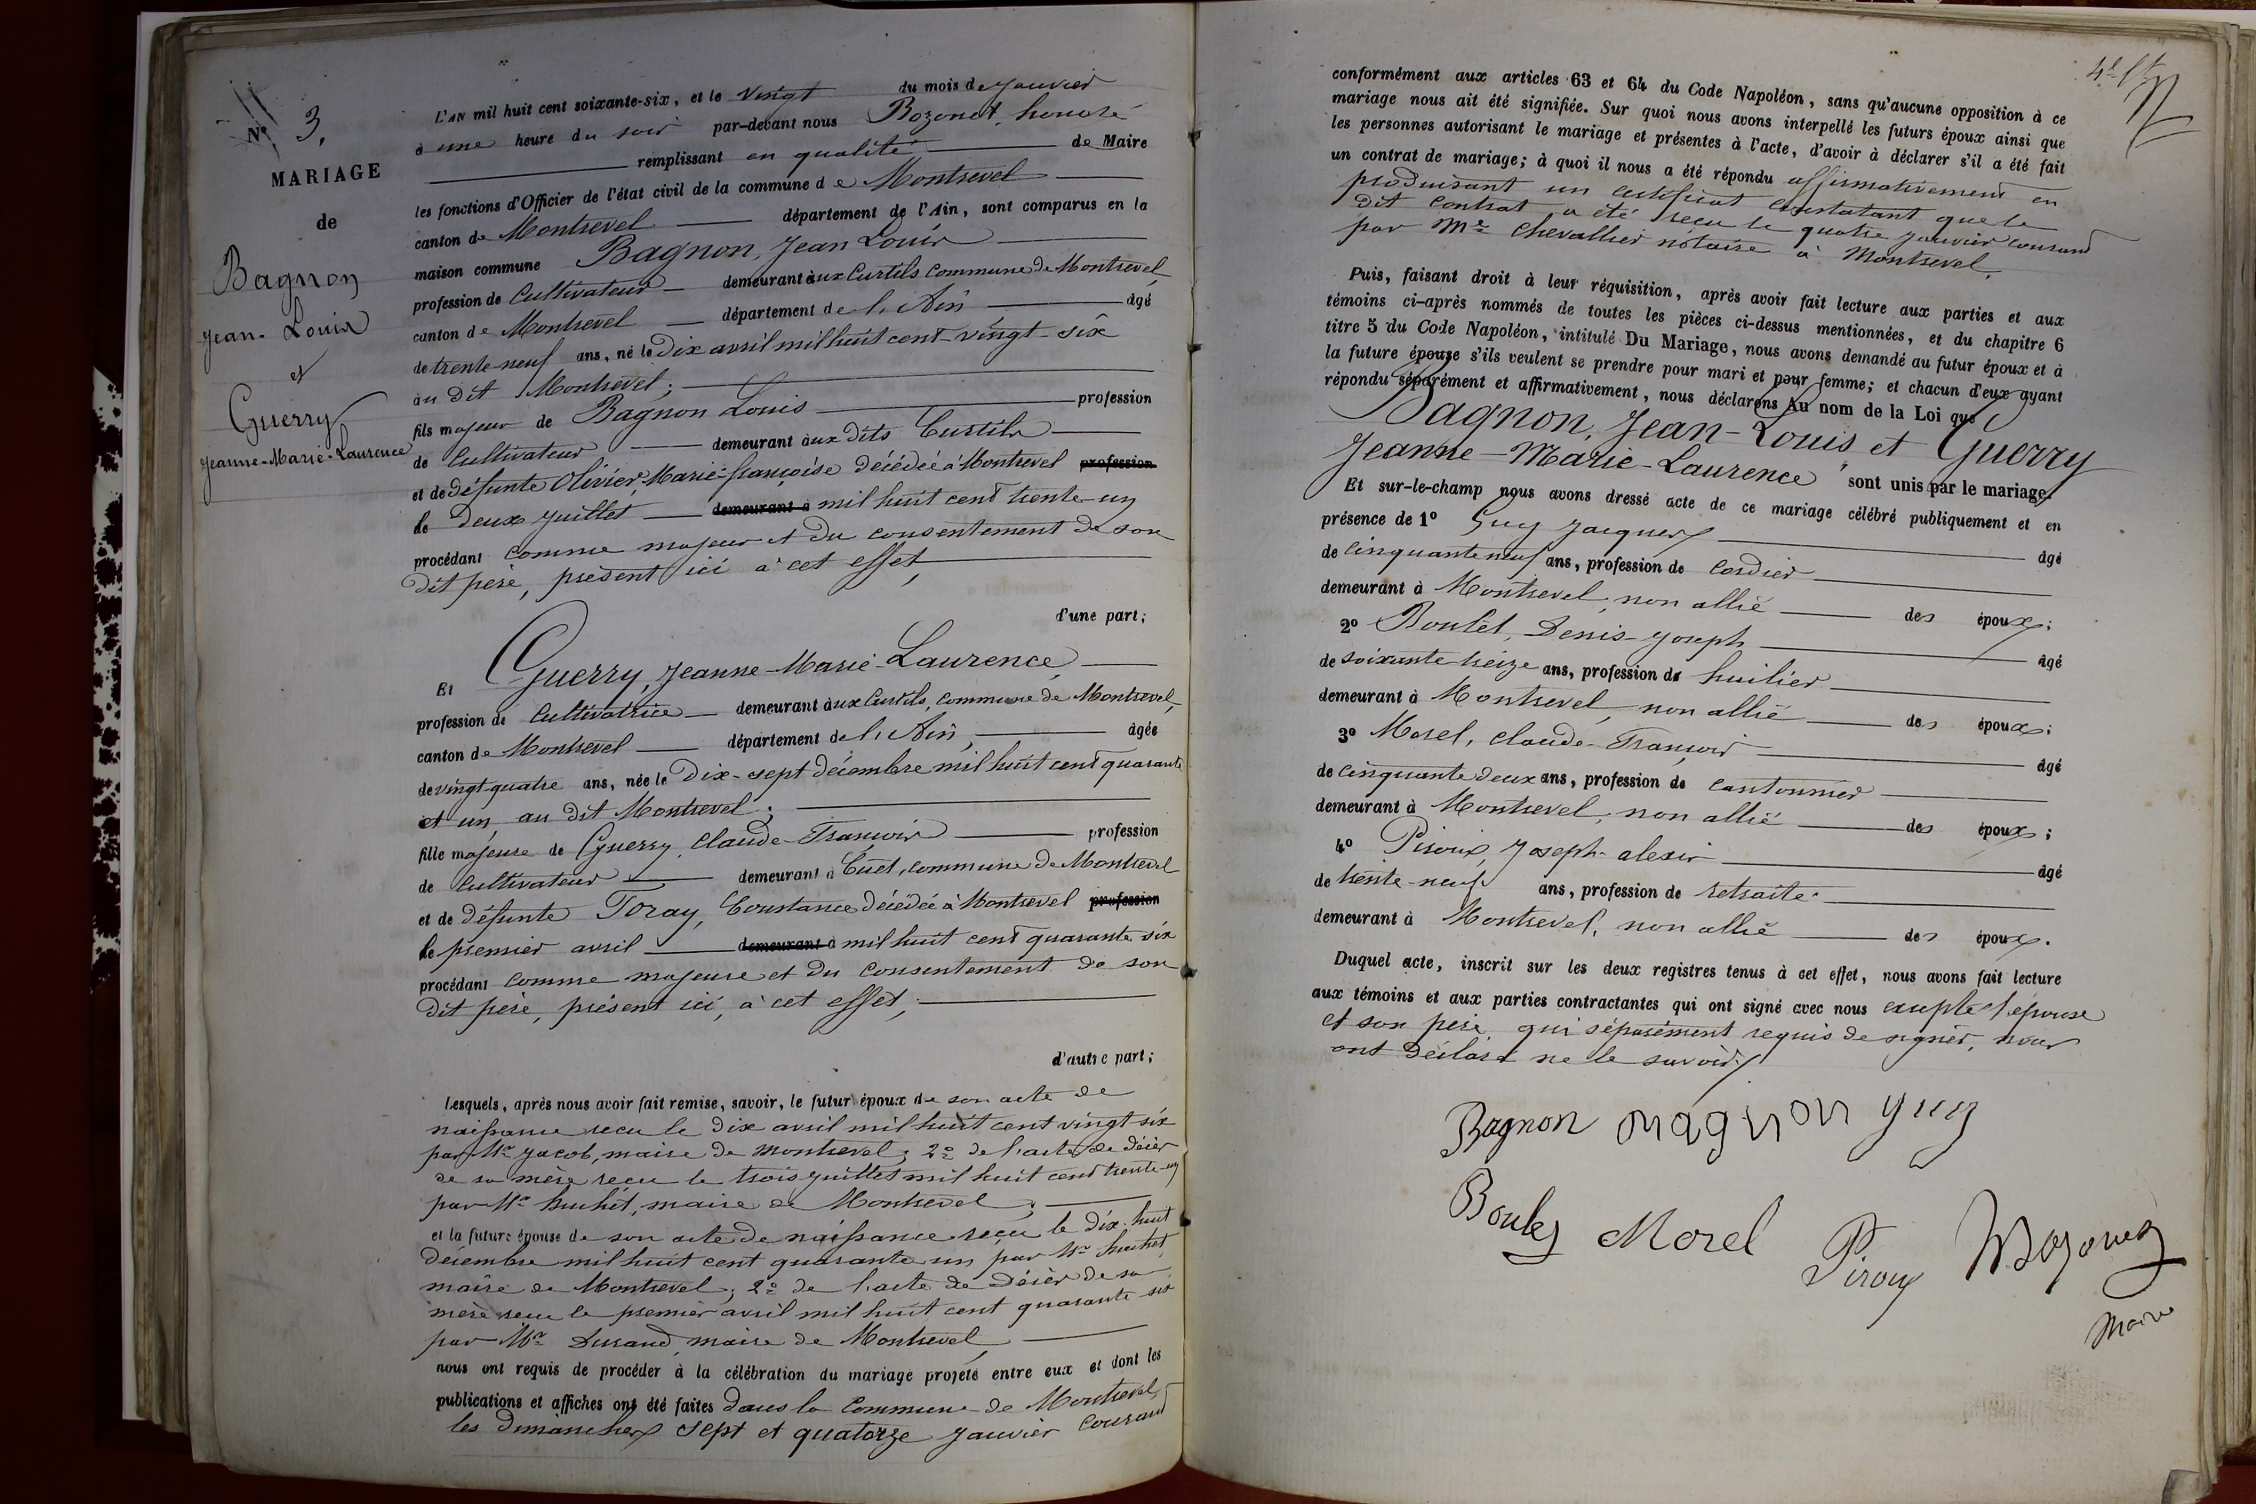 N° 3.
MARIAGE
de
Bagnon
Jean-Louis
et
Guerry
Jeanne-Marie-Laurence
L'AN mil huit cent soixante-six, et le vingt du mois de Janvier
à une heure du soir par-devant nous Bozonet, honoré
remplissant en qualité de Maire
les fonctions d'Officier de l'état civil de la commune de Montrevel
canton de Montrevel département de l'Ain, sont comparus en la
maison commune Bagnon, Jean Louis
profession de Cultivateur demeurant aux Curtils commune de Montrevel,
canton de Montrevel département de l'Ain âgé
de trente-neuf ans, né le Dix avril mil huit cent vingt-six
au dit Montrevel;
fils majeur de Bagnon Louis profession
de Cultivateur demeurant aux dits Curtils
et de défunte Olivier, Marie-françoise décédée à Montrevel profession
le deux juillet demeurant à mil huit cent trente-un
procédant comme majeur et du consentement de son
dit père, présent ici à cet effet,
d'une part;
Et Guerry, Jeanne-Marie-Laurence,
profession de Cultivatrice demeurant aux Curtils, commune de Montrevel,
canton de Montrevel département de l'Ain, âgée
de vingt-quatre ans, née le Dix-sept décembre mil huit cent quarante
et un, au dit Montrevel;
fille majeure de Guerry, Claude-François profession
de Cultivateur demeurant à Cuet, commune de Montrevel
et de défunte Toray, Constance décédée à Montrevel profession
le premier avril demeurant à mil huit cent quarante six
procédant comme majeure et du consentement de son
dit père, présent ici, à cet effet;
d'autre part;
Lesquels, après nous avoir fait remise, savoir, le futur époux de son acte de
naissance reçu le dix avril mil huit cent vingt-six
par Mr Jacob, maire de Montrevel; 2° de l'acte de décès
de sa mère reçu le trois juillet mil huit cent trente-un
par Mr huchet, maire de Montrevel;
et la future épouse de son acte de naissance reçu le dix-huit
décembre mil huit cent quarante un par Mr huchet,
maire de Montrevel; 2° de l'acte de décès de sa
mère reçu le premier avril mil huit cent quarante six
par Mr Durand, maire de Montrevel,
nous ont requis de procéder à la célébration du mariage projeté entre eux et dont les
publications et affiches ont été faites dans la Commune de Montrevel,
les dimanches sept et quatorze Janvier courant
conformément aux articles 63 et 64 du Code Napoléon, sans qu'aucune opposition à ce
mariage nous ait été signifiée. Sur quoi nous avons interpellé les futurs époux ainsi que
les personnes autorisant le mariage et présentes à l'acte, d'avoir à déclarer s'il a été fait
un contrat de mariage; à quoi il nous a été répondu affirmativement en
produisant un certificat constatant que le
dit contrat a été reçu le quatre janvier courant
par Me Chevallier notaire à Montrevel.
Puis, faisant droit à leur réquisition, après avoir fait lecture aux parties et aux
témoins ci-après nommés de toutes les pièces ci-dessus mentionnées, et du chapitre 6
titre 5 du Code Napoléon, intitulé Du Mariage, nous avons demandé au futur époux et à
la future épouse s'ils veulent se prendre pour mari et pour femme; et chacun d'eux ayant
répondu séparément et affirmativement, nous déclarons Au nom de la Loi que
Bagnon, Jean-Louis et Guerry
Jeanne-Marie-Laurence sont unis par le mariage.
Et sur-le-champ nous avons dressé acte de ce mariage célébré publiquement et en
présence de 1° Guy Jacques âgé
de cinquante neuf ans, profession de cordier
demeurant à Montrevel, non allié des époux;
2° Boulet, Denis-Joseph âgé
de soixante-treize ans, profession de huilier
demeurant à Montrevel, non allié des époux;
3° Morel, Claude-François âgé
de cinquante deux ans, profession de cantonnier
demeurant à Montrevel, non allié des époux;
4° Piroux, Joseph-alexis âgé
de trente-neuf ans, profession de retraité
demeurant à Montrevel, non allié des époux.
Duquel acte, inscrit sur les deux registres tenus à cet effet, nous avons fait lecture
aux témoins et aux parties contractantes qui ont signé avec nous excepté l'épouse
et son père qui séparément requis de signer, nous
ont déclaré ne le savoir.
Bagnon Magnon guy
Boulet Morel Piroux Bozonet
Maire